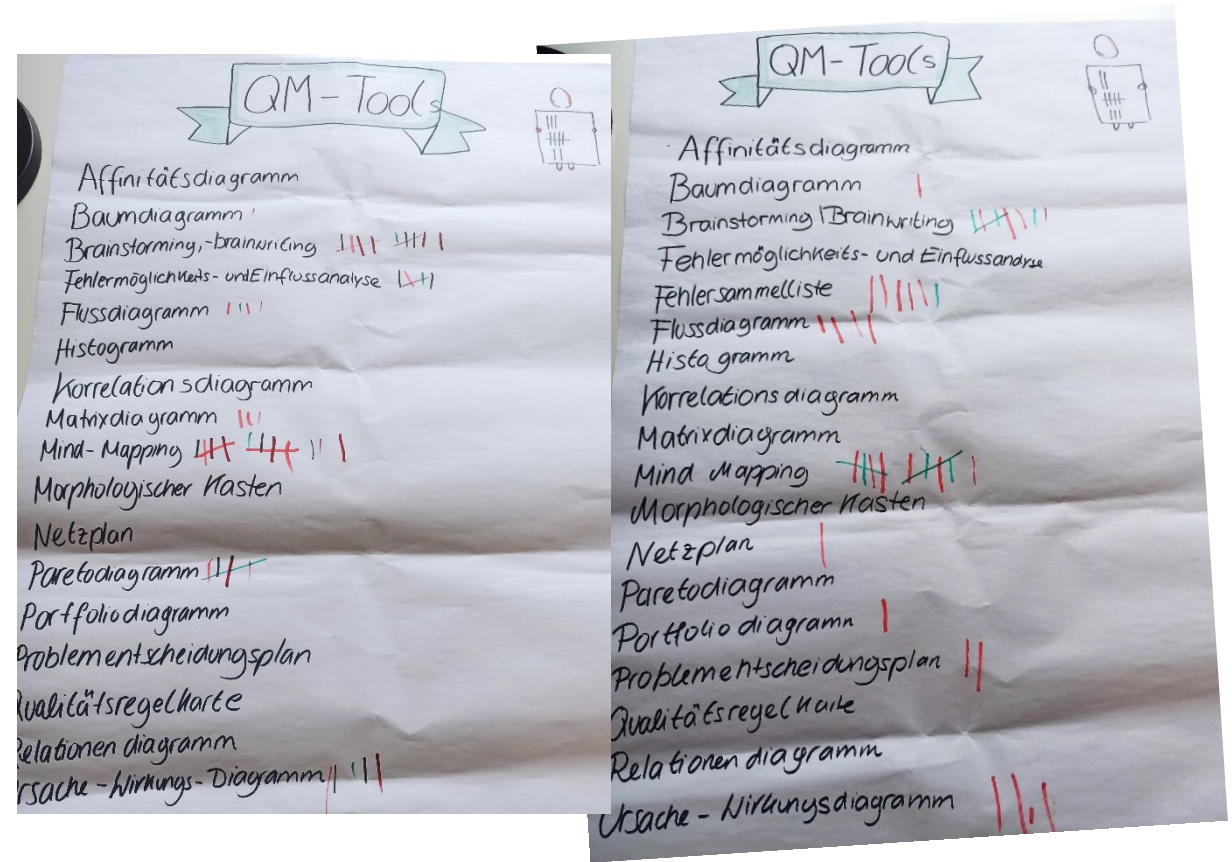 QM-Tools
Affinitätsdiagramm
Baumdiagramm
Brainstorming,-brainwriting
Fehlermöglichkeits- und Einflussanalyse
Flussdiagramm
Histogramm
Korrelationsdiagramm
Matrixdiagramm
Mind-Mapping
Morphologischer Kasten
Netzplan
Paretodiagramm
Portfoliodiagramm
Problementscheidungsplan
Qualitätsregelkarte
Relationen diagramm
rsache-Wirkungs-Diagramm
QM-Tools
Affinitätsdiagramm
Baumdiagramm
Brainstorming/Brainwriting
Fehlermöglichkeits- und Einflussanalyse
Fehlersammelliste
Flussdiagramm
Histogramm
Korrelationsdiagramm
Matrixdiagramm
Mind Mapping
Morphologischer Kasten
Netzplan
Paretodiagramm
Portfoliodiagramm
Problementscheidungsplan
Qualitätsregelkarte
Relationendiagramm
Ursache-Wirkungsdiagramm